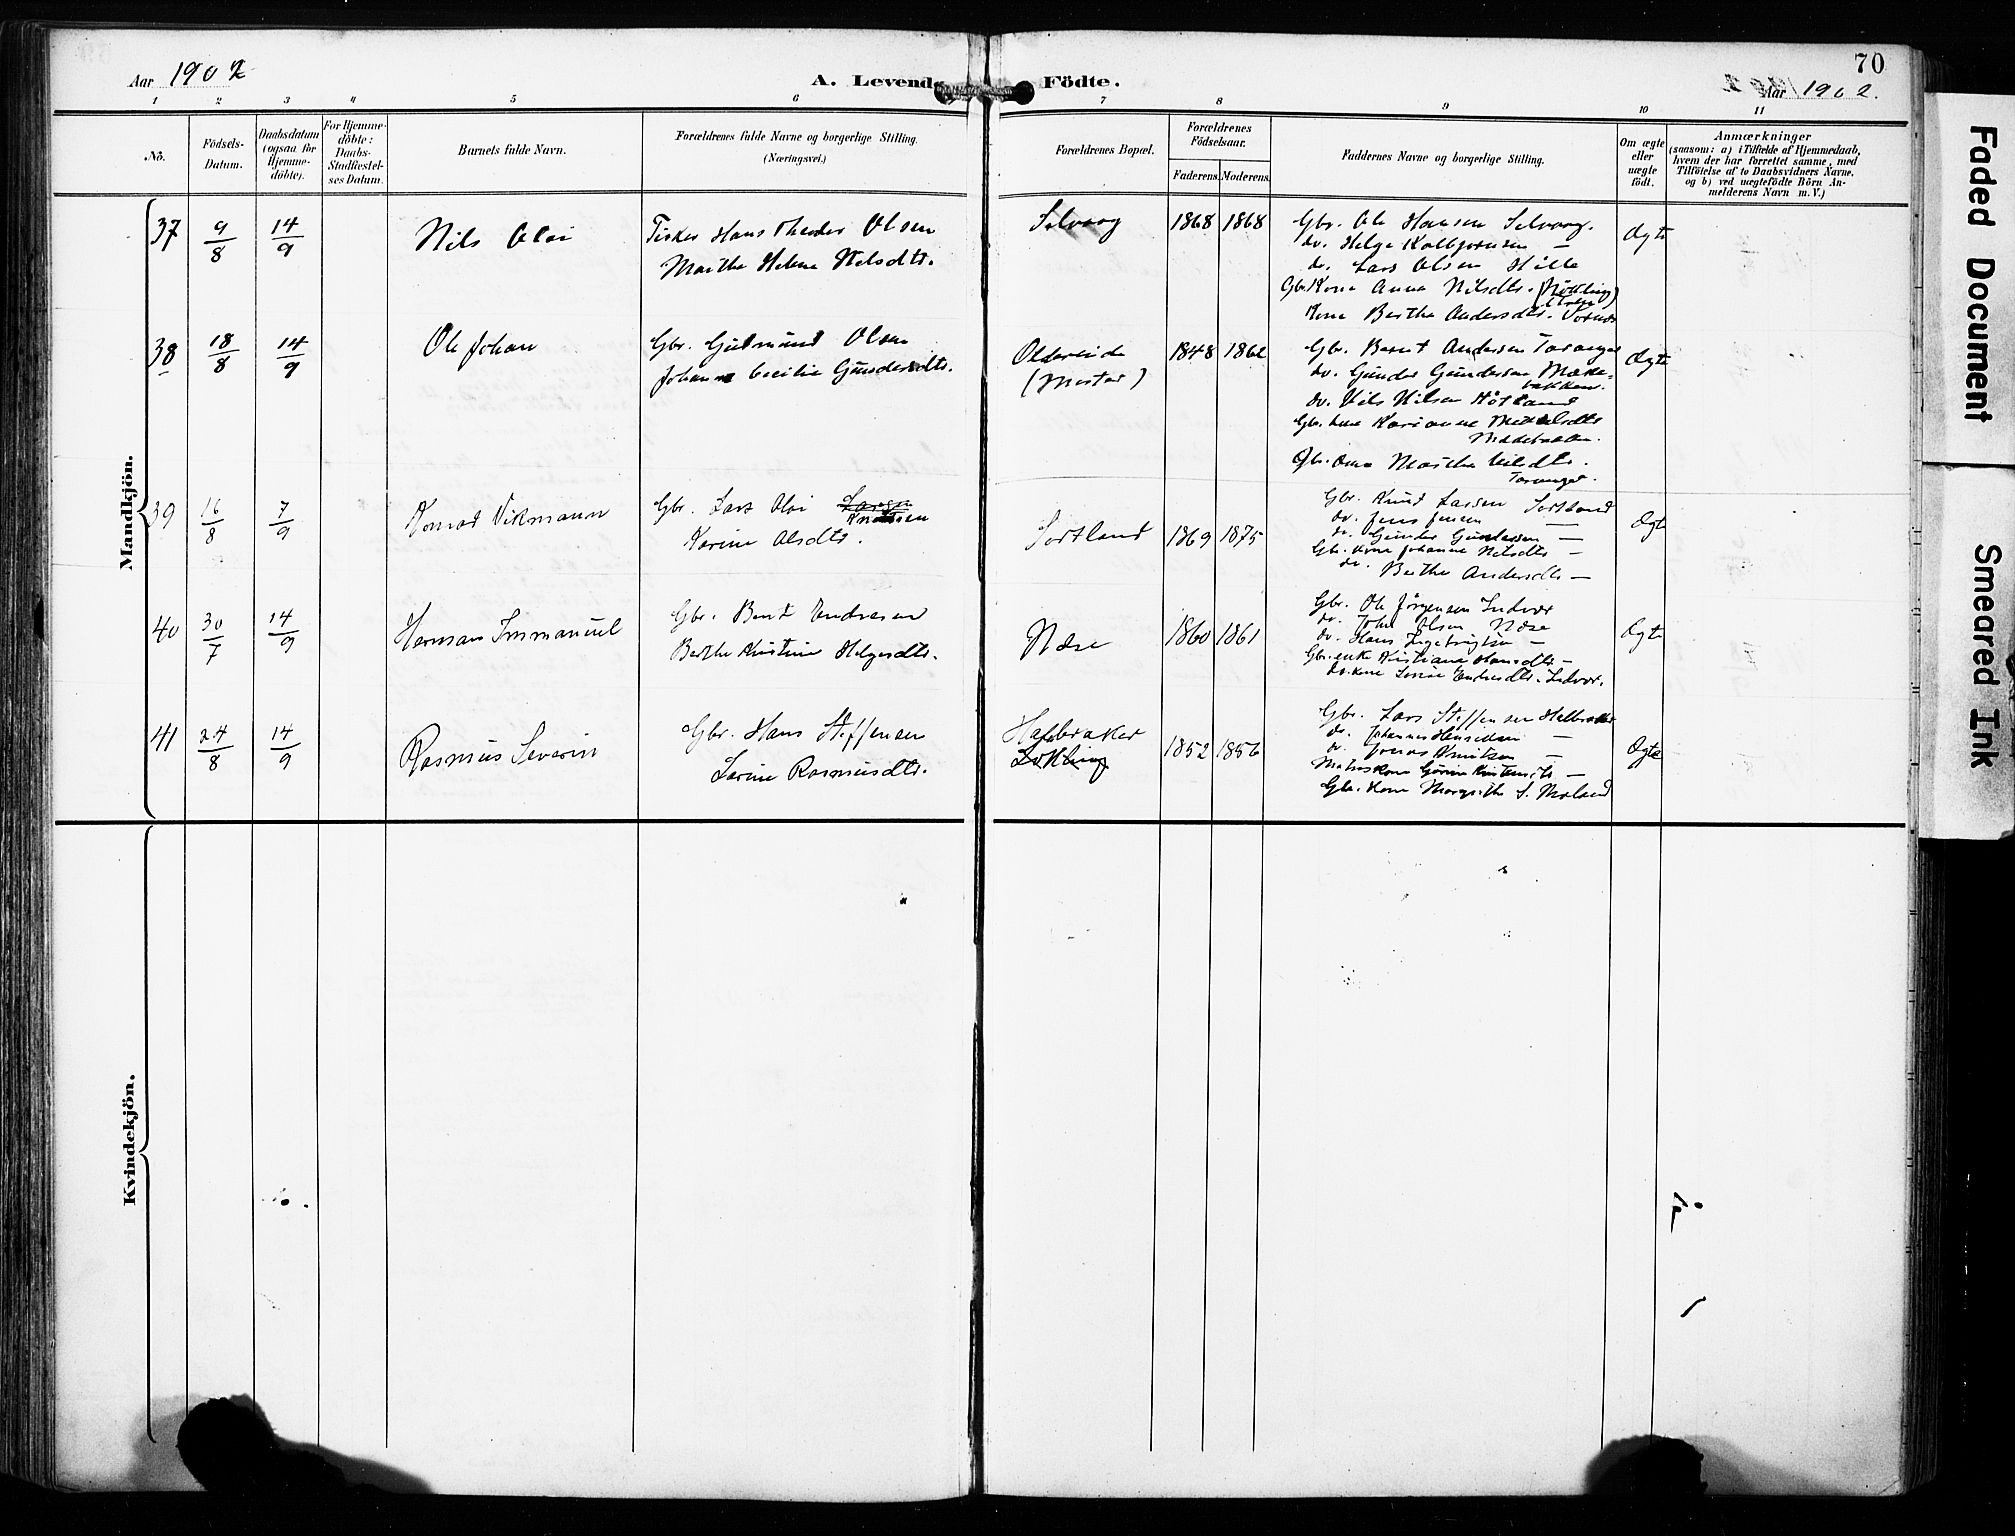 Aar 1902
A. Levende Födte.
70
Aar 1902.
1 2 3 4 5 6 7 8 9 10 11
No.
Födsels-
Datum.
Daabsdatum
(ogsaa for
Hjemme-
döbte).
For Hjemme-
döbte:
Daabs-
Stadfæstel-
ses Datum.
Barnets fulde Navn.
Forældrenes fulde Navne og borgerlige Stilling.
(Næringsvei.)
Forældrenes Bopæl.
Forældrenes
Födselsaar.
Faderens. Moderens.
Faddernes Navne og borgerlige Stilling.
Om ægte
eller
uægte
födt.
Anmærkninger
(saasom: a) i Tilfælde af Hjemmedaab,
hvem der har forrettet samme, med
Tilföielse af to Daabsvidners Navne,
og b) ved uægtefödte Börn An-
melderens Navn m. V.)
Mandkjön.
37 9/8 14/9 Nils Olai
Fisker Hans Theodor Olsen
Martha Helene Nilsdtr.
Selvaag 1868 1868
Gbr. Ole Hansen Selvaag.
do. Helge Kolbjørnsen —
do. Lars Olsen Hille
Gbr. Kone Anna Nilsdtr.
Kone Berthe Andersdtr.
Ægte
38 18/8 14/9 Ole Johan
Gbr. Gudmund Olsen
Johanne Cecilie Gundersdtr.
(Moster) 1848 1862
Gbr. Bernt Andersen Toranger
do. Gunder Gundersen Mæhle-
bakken.
do. Nils Nilsen
Gbr. kone Karianne
Gbr. kone Martha Nilsdtr.
Toranger.
Ægte
39 16/8 7/9 Konrad Vikmann
Gbr. Lars Olai Larsen
Knudsen
Karine Olsdtr.
Sortland 1869 1875
Gbr. Knud Larsen Sortland
do. Jens Jensen —
do. Gunder Gundersen —
Gbr. kone Johanne Nilsdtr —
do. Berthe Andersdtr —
Ægte
40 30/7 14/9 Herman Immanuel
Gbr. Bernt Endresen
Berthe Kristine Helgesdtr.
Næse 1860 1861
Gbr. Ole Jørgensen Indvær
do. John Olsen Næse
do. Hans Ingebrigtsen —
Gbr. enke Kristiane Hansdtr —
do. kone Endresdtr. Indvær.
Ægte
41 24/8 14/9 Rasmus Severin
Gbr. Hans Steffensen
Serine Rasmusdtr.
1852 1856
Gbr. Lars Steffensen
do. Johannes —
do. Jonas Knutsen —
Gbr. kone Margrethe S. Moland
Ægte
Kvindekjön.
Faded Document
Smeared Ink